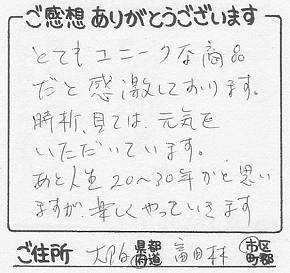 ご感想ありがとうございます
とてもユニークな商品
だと感激しております。
時折、見ては、元気を
いただいています。
あと人生20〜30年かと思い
ますが、楽しくやっていきます
ご住所 大阪 都道府県 富田林 市区町郡